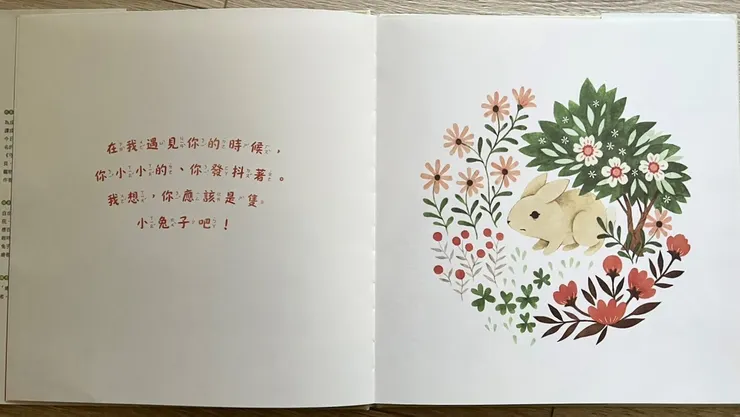 在我遇見你的時候，
你小小的、你發抖著。
我想，你應該是隻。
小兔子吧！